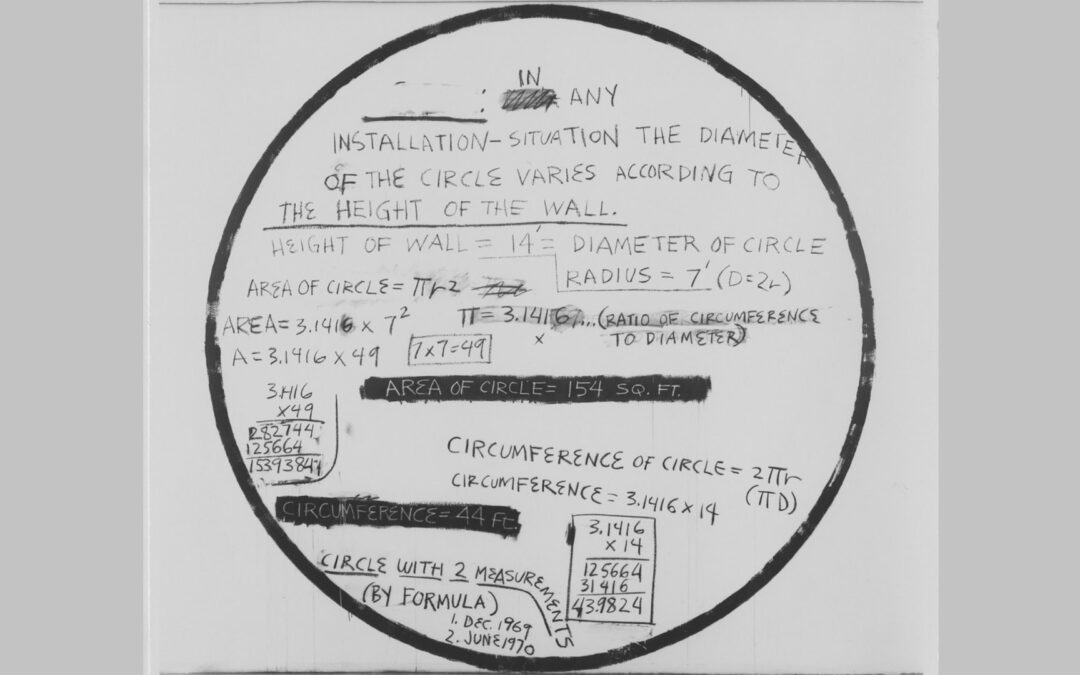 : IN ANY
INSTALLATION-SITUATION THE DIAMETER
OF THE CIRCLE VARIES ACCORDING TO
THE HEIGHT OF THE WALL.
HEIGHT OF WALL = 14' = DIAMETER OF CIRCLE
RADIUS = 7' (D=2r)
AREA OF CIRCLE = πr2
AREA = 3.1416 x 7²
π = 3.1416... (RATIO OF CIRCUMFERENCE
TO DIAMETER)
x
A = 3.1416 x 49
7x7=49
AREA OF CIRCLE = 154 SQ. FT.
3.1416
x49
282744
125664
1539384
CIRCUMFERENCE OF CIRCLE = 2πr
(πD)
CIRCUMFERENCE = 3.1416 x 14
CIRCUMFERENCE = 44 FT.
3.1416
x 14
125664
31416
439824
CIRCLE WITH 2 MEASUREMENTS
(BY FORMULA)
1. DEC. 1969
2. JUNE 1970